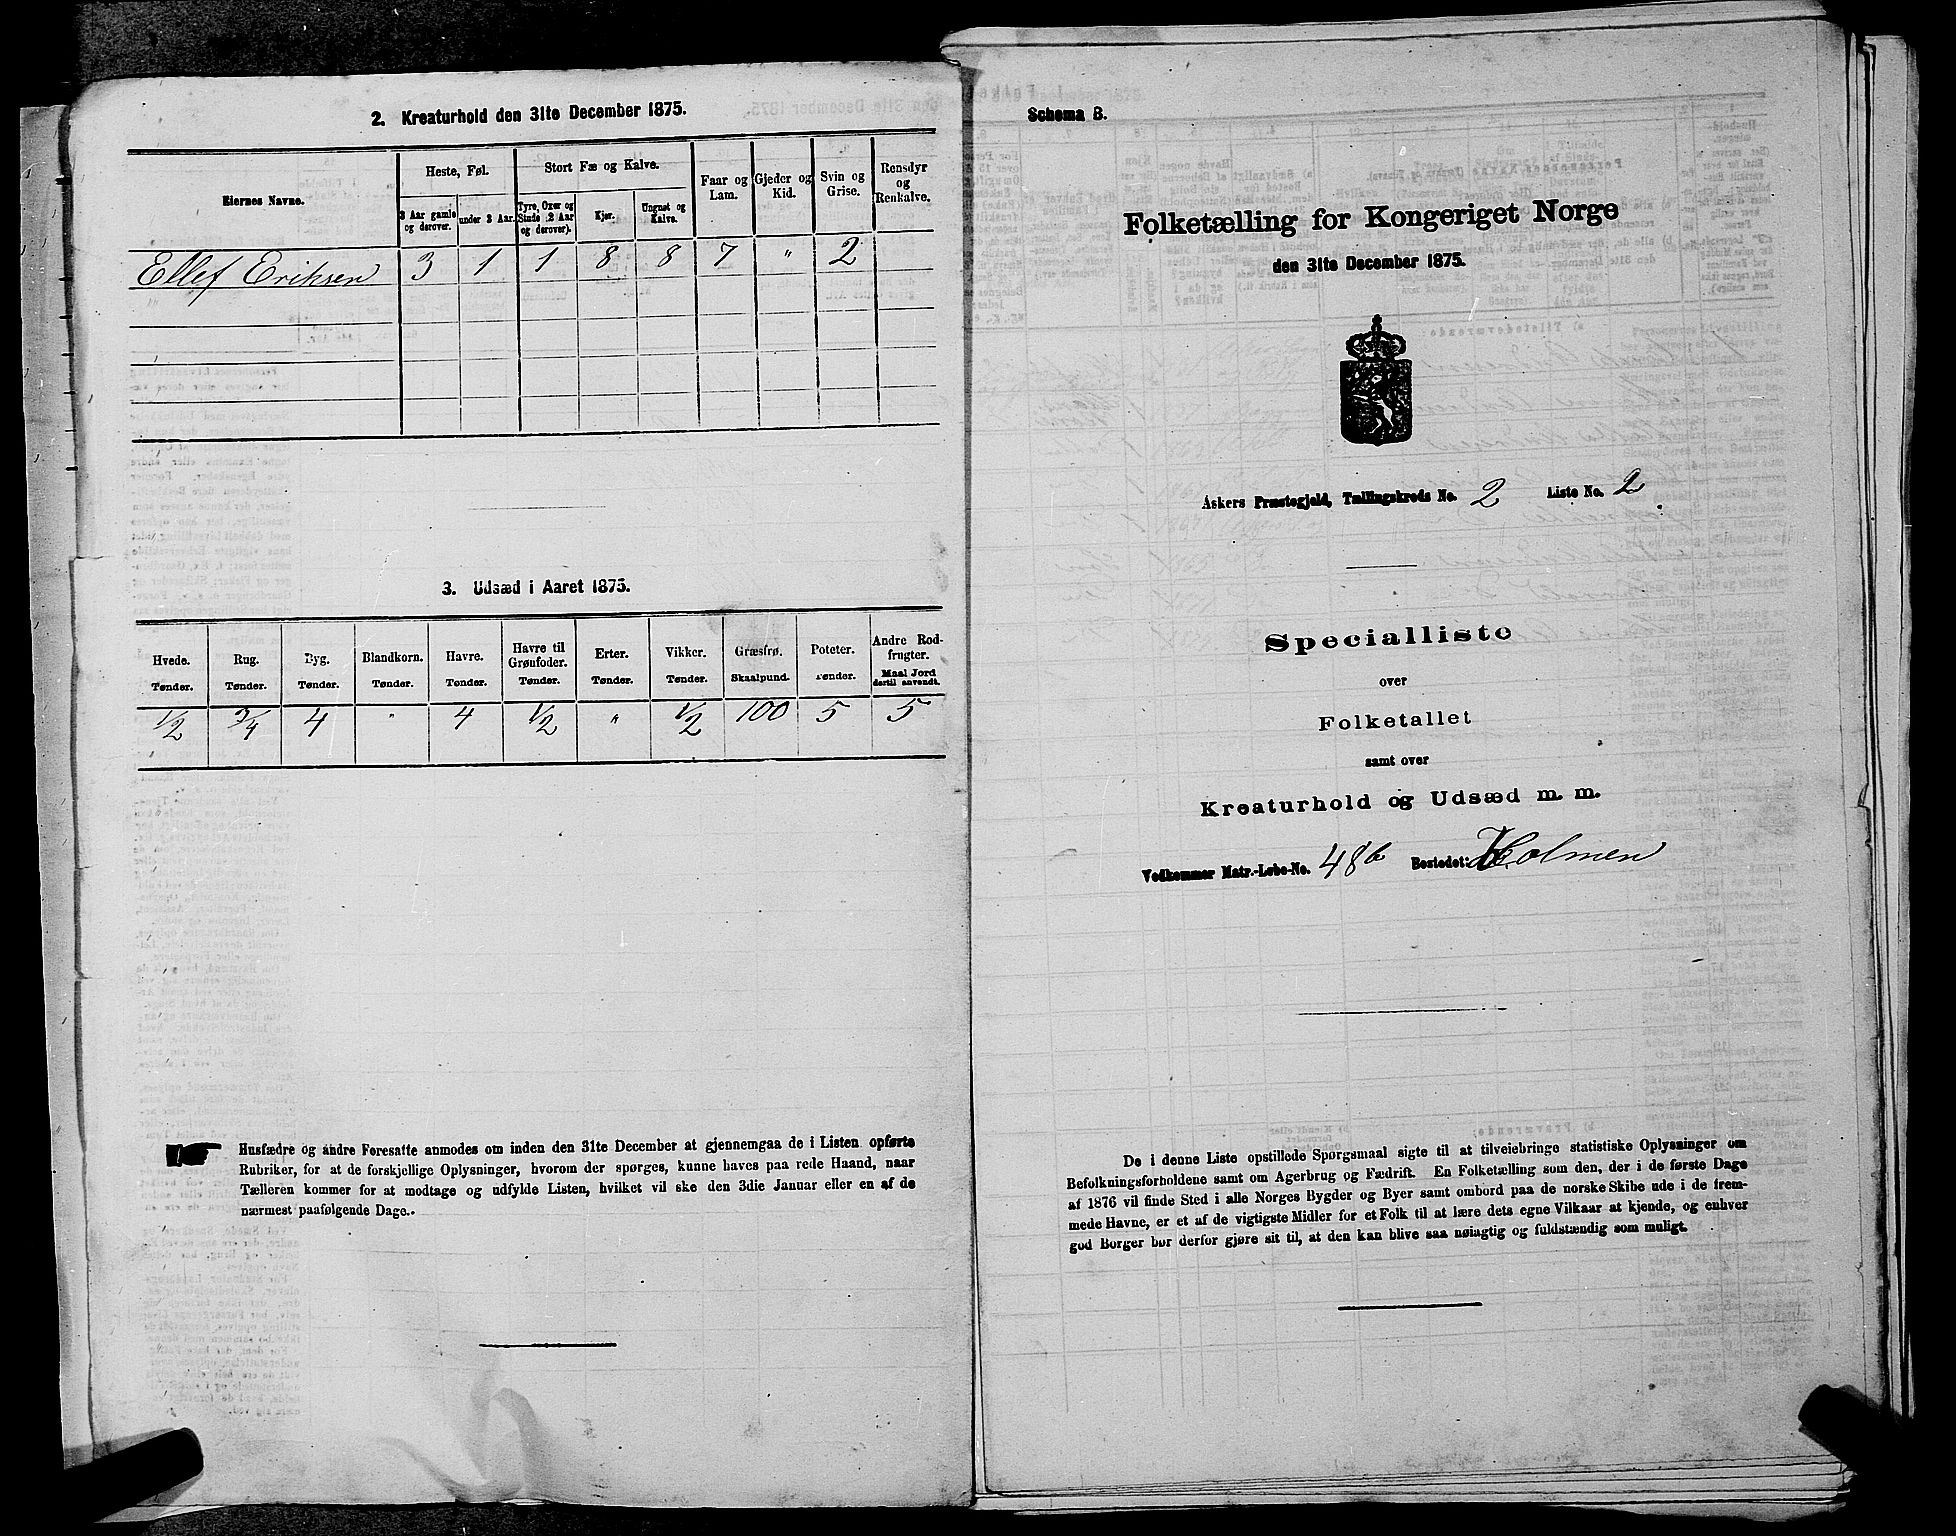 2. Kreaturhold den 31te December 1875.
Eiernes Navne.
Heste, Føl.
3 Aar gamle og derover.
under 3 Aar.
Stort Fæ og Kalve.
Tyre, Oxer og Stude (2 Aar og derover).
Kjør.
Ungnøt og Kalve.
Faar og Lam.
Gjeder og Kid.
Svin og Grise.
Rensdyr og Renkalve.
Ellef Eriksen 3 1 1 8 8 7 " 2
"
3. Udsæd i Aaret 1875.
Hvede. Rug. Byg. Blandkorn. Havre. Havre til Grønfoder. Erter. Vikker. Græsfrø. Poteter. Andre Rodfrugter.
Tønder. Tønder. Tønder. Tønder. Tønder. Tønder. Tønder. Tønder. Skaalpund. Tønder. Maal Jord dertil anvendt.
1/2 3/4 4 " 4 1/2 " 1/2 100 5 5
Husfædre og andre Foresatte anmodes om inden den 31te December at gjennemgaa de i Listen opførte
Rubriker, for at de forskjellige Oplysninger, hvorom der spørges, kunne haves paa rede Haand, naar
Tælleren kommer for at modtage og udfylde Listen, hvilket vil ske den 3die Januar eller en af de
nærmest paafølgende Dage.
Schema B.
Folketælling for Kongeriget Norge
den 31te December 1875.
Askers Præstegjeld, Tællingskreds No. 2 Liste No. 2
Specialliste
over
Folketallet
samt over
Kreaturhold og Udsæd m. m.
Vedkommer Matr.-Løbe-No. 48b Bostedet: Holmen
De i denne Liste opstillede Spørgsmaal sigte til at tilveiebringe statistiske Oplysninger om
Befolkningsforholdene samt om Agerbrug og Fædrift. En Folketælling som den, der i de første Dage
af 1876 vil finde Sted i alle Norges Bygder og Byer samt ombord paa de norske Skibe ude i de frem-
mede Havne, er et af de vigtigste Midler for et Folk til at lære dets egne Vilkaar at kjende, og enhver
god Borger bør derfor gjøre sit til, at den kan blive saa nøiagtig og fuldstændig som muligt.